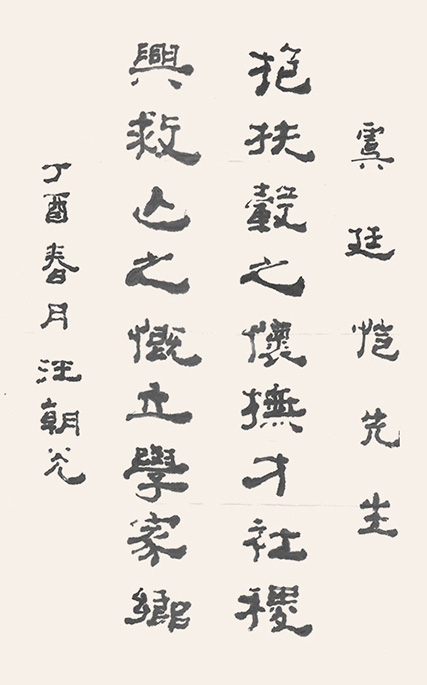 虞廷恺先生
抱扶毂之懷撫才社稷
興救亾之慨立學家鄉
丁酉春月汪朝光